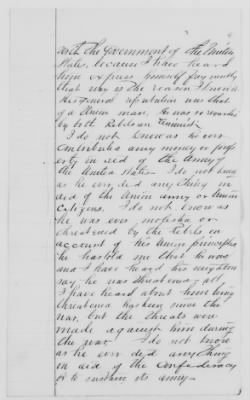 with the Government of the United
States, because I have heard
him express himself frequently
that way is the reason I know
His general reputation was that
of a Union man. He was so
by both Rebels and Unionist
I do not know as he ever
contributed any money or prop
erty in aid of the Army of
the United States. I do not know
as he ever did anything in
aid of the Union army or Union
Citizens. I do not know as
he was ever molested or
threatened by the Rebels on
account of his Union principles
he has told me that he was
and I have heard his neighbors
say he was threatened &
I have heard about him being
threatened has been since the
war, but the threats were
made against him during
the war. I do not know
as he ever did anything
in aid of the Confederacy
or to sustain its army.